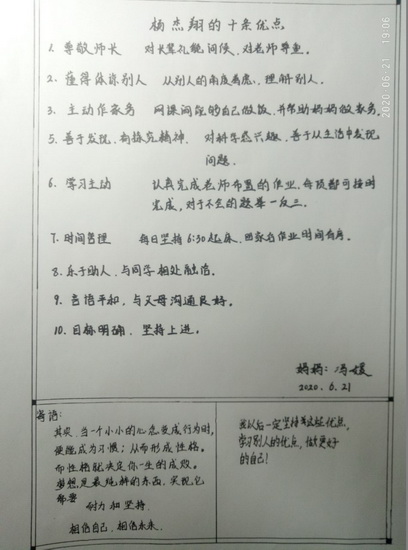 杨杰翔的十条优点
1. 尊敬师长 对长辈礼貌问候,对老师尊重。
2. 懂得体谅别人 从别人的角度考虑,理解别人。
3. 主动作家务 网课间能够自己做饭,并帮助妈妈做家务。
5. 善于发现,有探究精神 对科学感兴趣,善于从生活中发现
问题。
6. 学习主动 认真完成老师布置的作业,每项都可按时
完成,对于不会的题举一反三。
7. 时间管理 每日坚持6:30起床,回家后作业时间有序。
8. 乐于助人,与同学相处融洽。
9. 言语平和,与父母沟通良好。
10. 目标明确,坚持上进。
妈妈:冯媛
2020.6.21
寄语:
其实,当一个小小的心念变成行为时,
便能成为习惯;从而形成性格。
而性格就决定你一生的成败。
梦想,是最纯粹的东西,实现它
都要
耐力和坚持
相信自己,相信未来。
我以后一定坚持我这些优点,
学习别人的优点,做更好
的自己!
2020 06 21 19:06